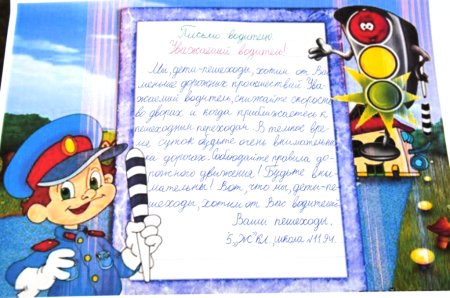 Письмо водителю
Уважаемый водитель!
Мы, дети-пешеходы, хотим от Вас
меньше дорожных происшествий. Ува-
жаемый водитель, снижайте скорость
во дворах и когда приближаетесь к
пешеходным переходам. В темное вре-
мя, суток будьте очень внимательны
на дорогах. Соблюдайте правила до-
рожного движения! Будьте вни-
мательны! Вот, что мы, дети-пе-
шеходы, хотим от Вас водителей.
Ваши пешеходы.
5 "Ж" кл. школа